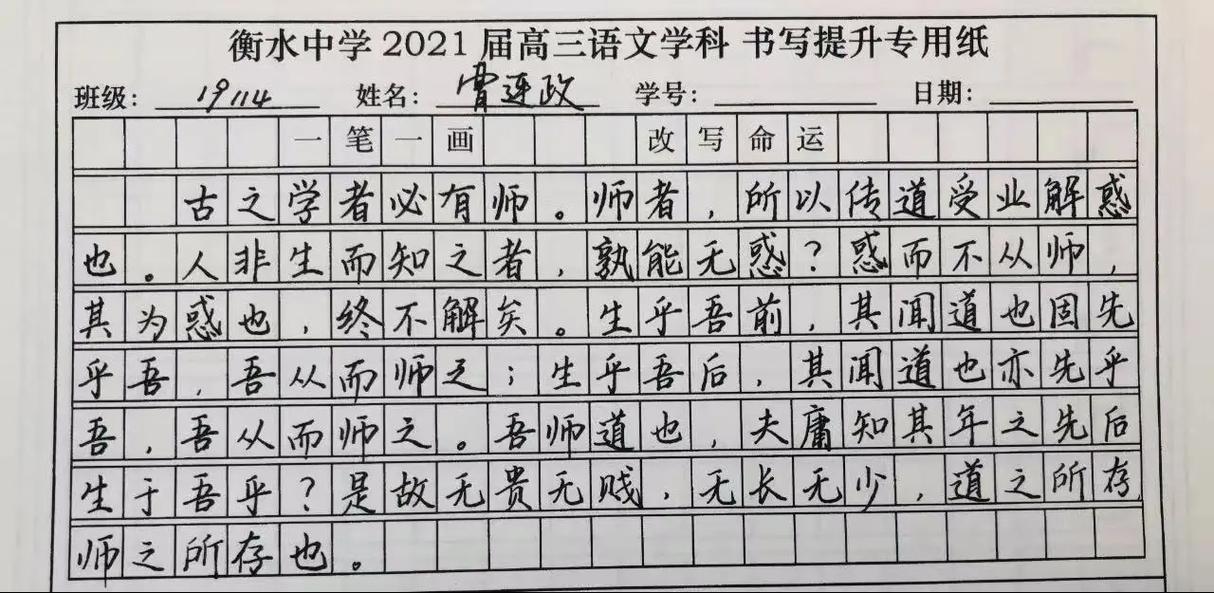 衡水中学 2021 届高三语文学科 书写提升专用纸
班级：19114 姓名：曹连政 学号： 日期：
一笔一画 改写命运
古之学者必有师。师者，所以传道受业解惑
也。人非生而知之者，孰能无惑？惑而不从师，
其为惑也，终不解矣。生乎吾前，其闻道也固先
乎吾，吾从而师之；生乎吾后，其闻道也亦先乎
吾，吾从而师之。吾师道也，夫庸知其年之先后
生于吾乎？是故无贵无贱，无长无少，道之所存
师之所存也。